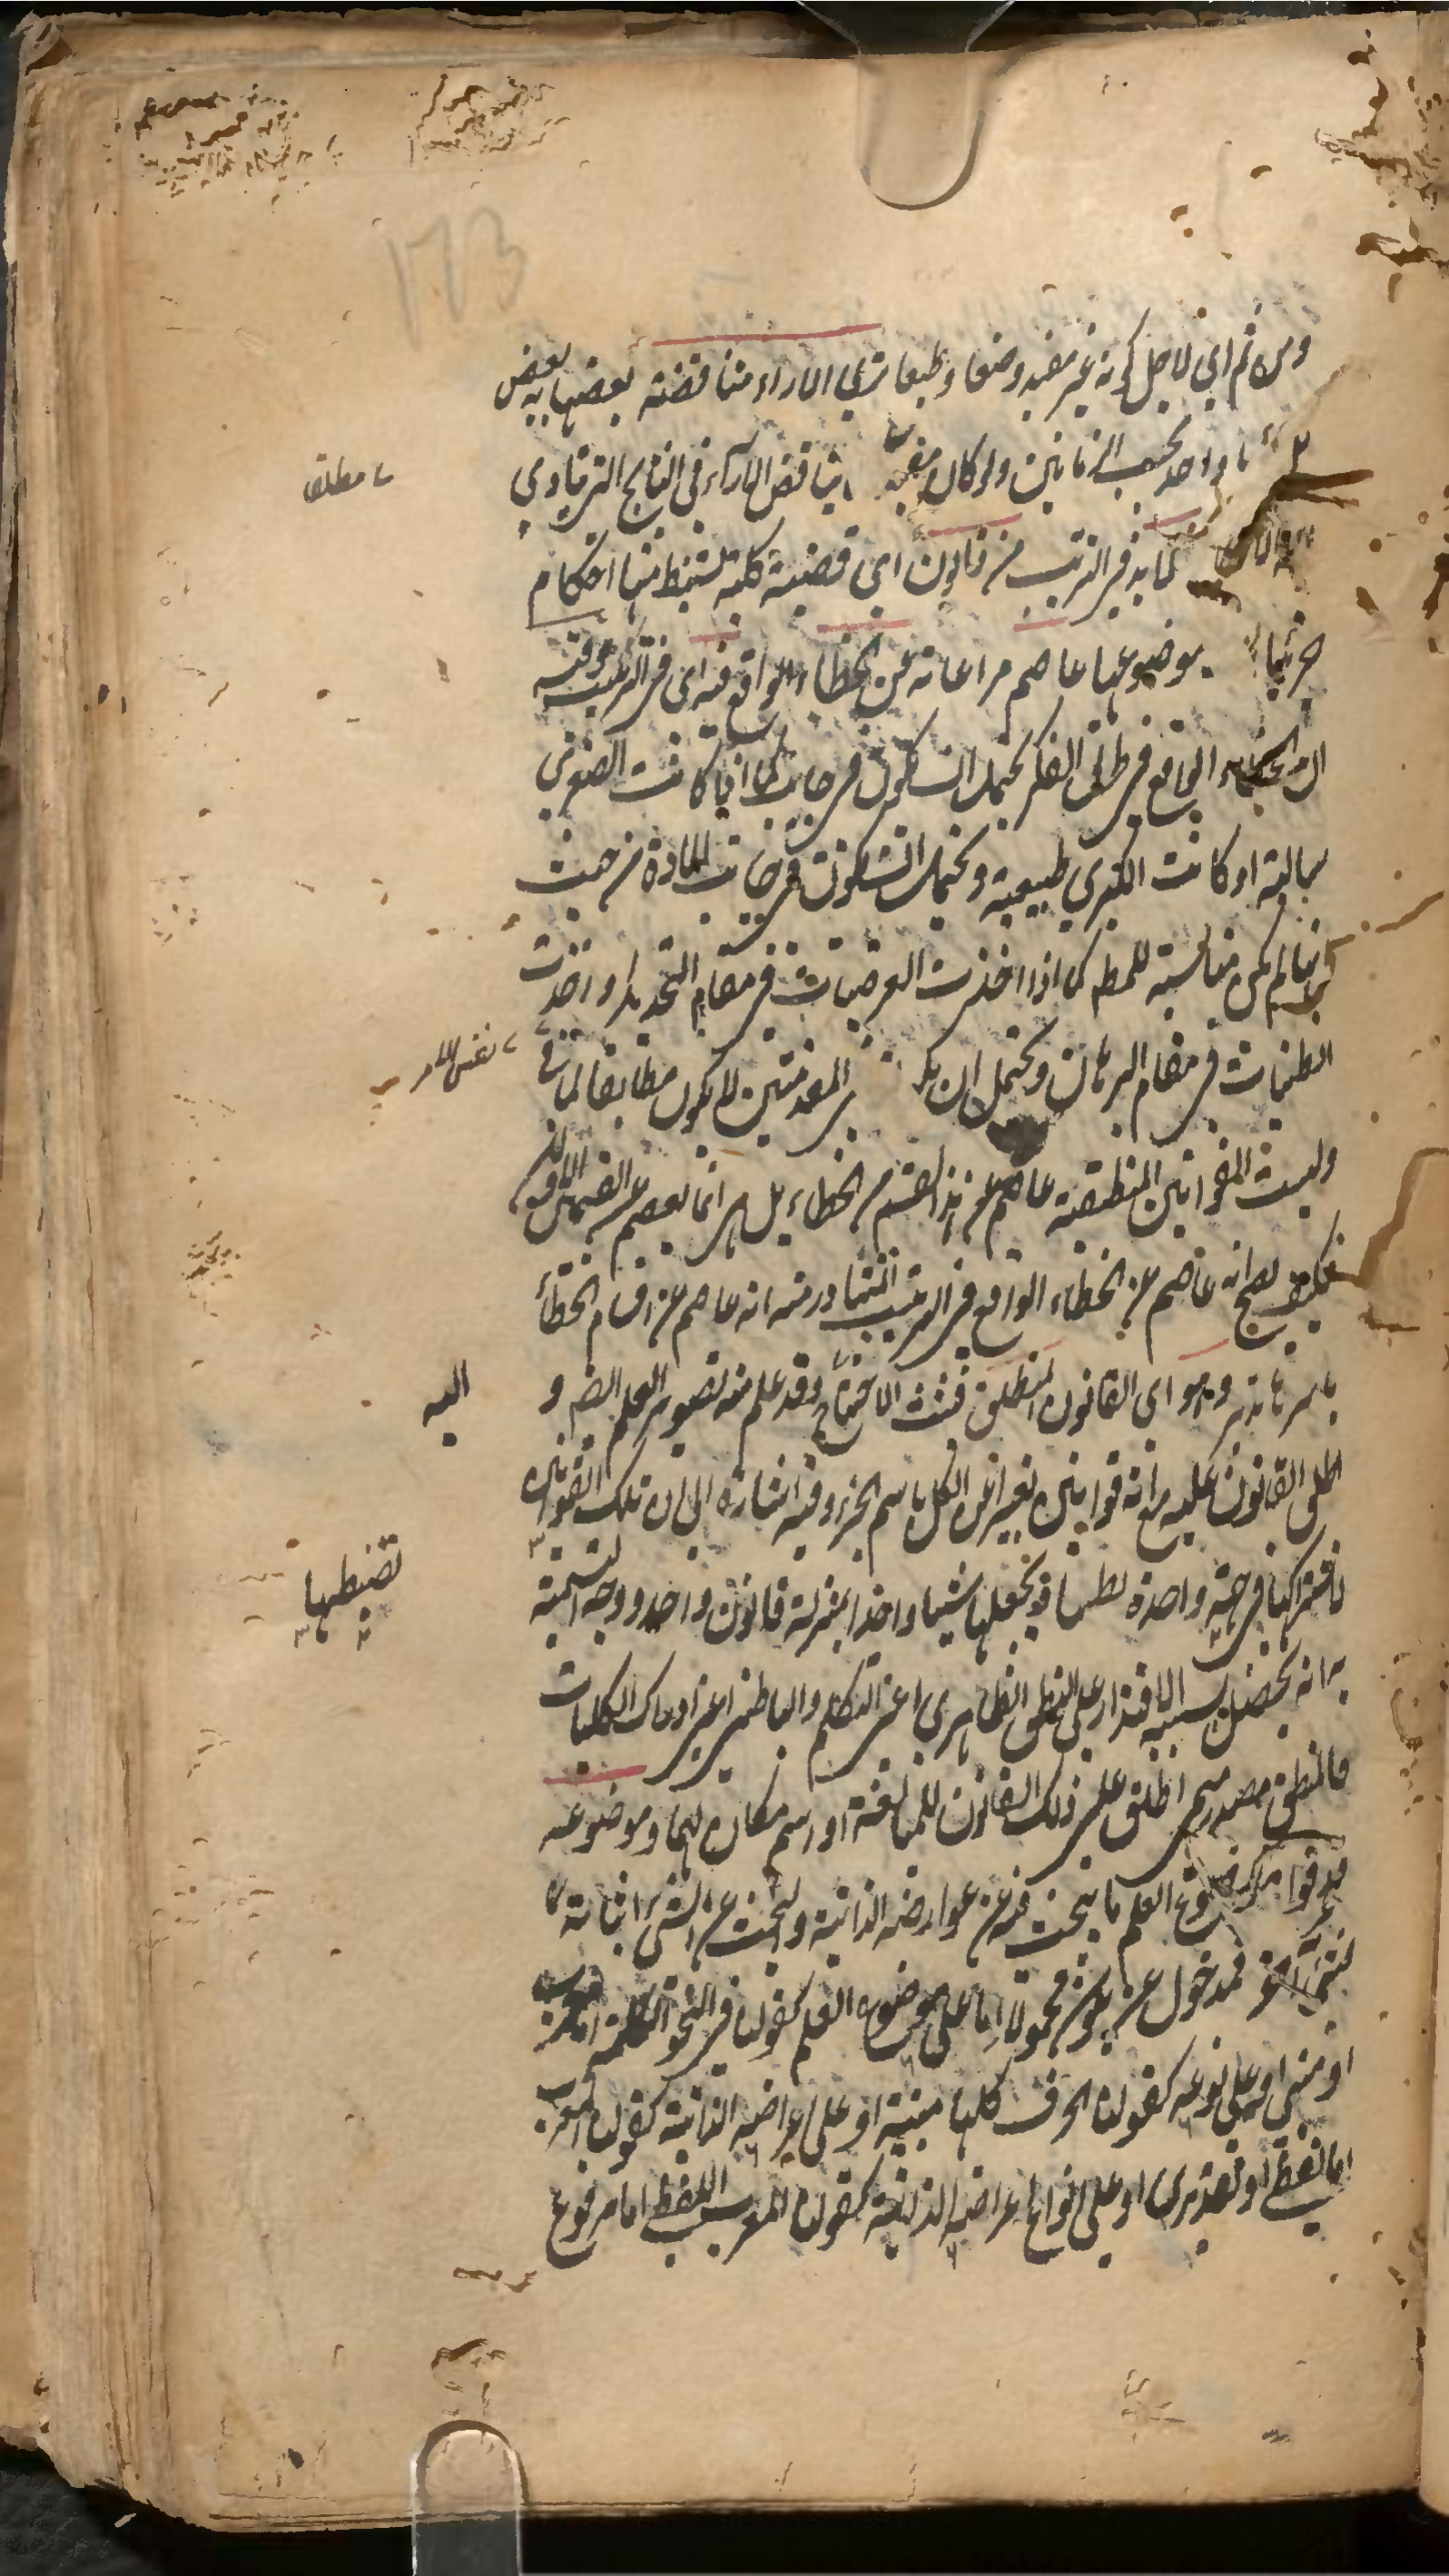 ومن ثم اي لاجل كونه غير مفيد وضعا وطبعا ترى الاراء متناقضة بعضها ببعض
واحد بحسب الزمانين ولو كان مفيدا يتناقض الاراء في النتايج التي تنادي
مطلقا
فلا بد في الترتيب من قانون اي قضية كلية تستنبط منها احكام
جزئيات موضوعها عاصم مراعاته عن الخطاء الواقع فيه اي في الترتيب وفيه
ان الخطاء الواقع في طريق الفكر يحتمل ان يكون في جانب كما اذا كانت الصغرى
سالبة او كانت الكبرى طبيعية ويحتمل ان يكون في جانب المادة من حيث
انها لم يكن مناسبة للمط كما اذا اخذت العرضيات في مقام التحديد او اخذت
الظنيات في مقام البرهان ويحتمل ان المقدمتين لا يكون مطابقا لما في
نفس الامر
وليست القوانين المنطقية عاصم عن هذا القسم من الخطاء بل هي انما يعصم عن القسمين الاولين
فكيف يصح انه عاصم عن الخطاء الواقع في الترتيب المتبادر منه انه عاصم عن اقسام الخطأ
باسرها وهو اي القانون المنطق فثبت الاحتياج وقد علم منه تصوير العلم ايضا و
اليه
اطلق القانون عليه مع انه قوانين تعبيرا عن الكل باسم الجزء وفيه اشارة الى ان تلك القوانين
لاشتراكها في جهة واحدة تجعلها شيئا واحدا بمنزلة قانون واحد ووجه التسمية
تضبطها
به انه يحصل بسببه الاقتدار على النطق الظاهري اعني التكلم والباطني اعني ادراك الكليات
فالمنطق مصدر ميمي اطلق على ذلك القانون للمبالغة او اسم مكان لهما وموضوعه
عرفوا موضوع العلم ما يبحث فيه عن عوارضه الذاتية والبحث عن الشيء اثباته
لشيء آخر فمدخول عن يكون محمولا اما على موضوع العلم كقولنا في النحو الكلمة اما معرب
او مبني او على نوعه كقولنا الحرف كلها مبنية او على اعراضه الذاتية كقولنا المعرب
اما لفظي او تقديري او على انواع اعراضه الذاتية كقولنا المعرب اللفظي اما مرفوع